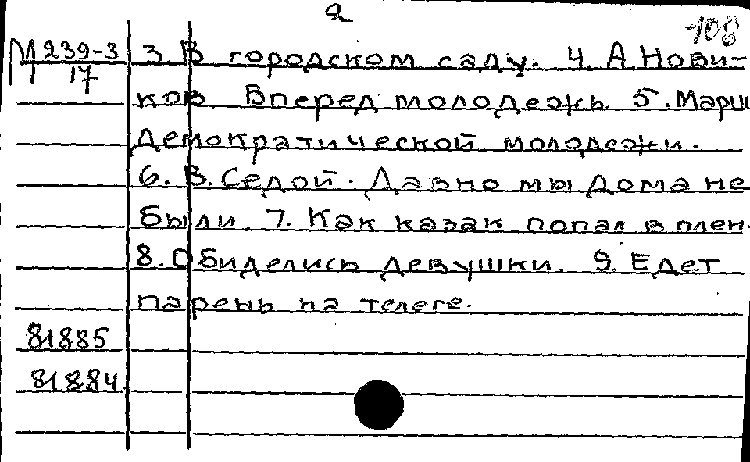 2
108
М 239-3
17
3. В городском саду. 4. А. Нови-
ков Вперед молодежь. 5. Марш
демократической молодежи.
6. В. Седой. Давно мы дома не
были. 7. Как казак попал в плен
8. Обиделись девушки. 9. Едет
парень на телеге.
81885
81884